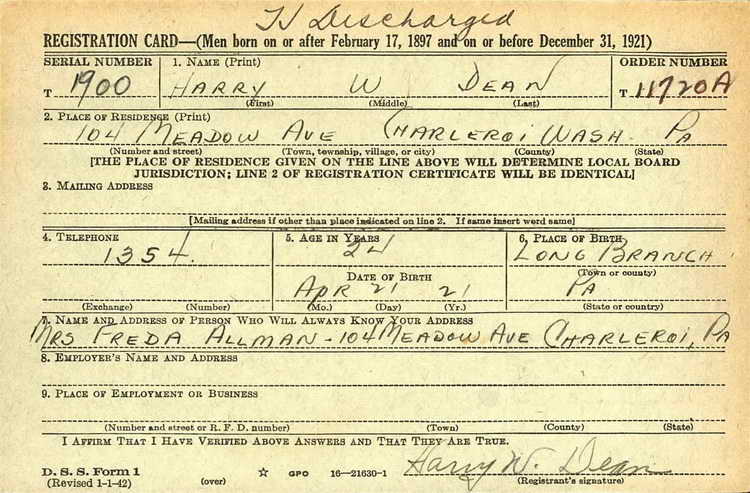 Discharged
REGISTRATION CARD—(Men born on or after February 17, 1897 and on or before December 31, 1921)
SERIAL NUMBER 1. NAME (Print) ORDER NUMBER
T 1900 HARRY W DEAN T 11720A
(First) (Middle) (Last)
2. PLACE OF RESIDENCE (Print)
104 MEADOW AVE CHARLEROI WASH. PA
(Number and street) (Town, township, village, or city) (County) (State)
[THE PLACE OF RESIDENCE GIVEN ON THE LINE ABOVE WILL DETERMINE LOCAL BOARD
JURISDICTION; LINE 2 OF REGISTRATION CERTIFICATE WILL BE IDENTICAL]
3. MAILING ADDRESS
[Mailing address if other than place indicated on line 2. If same insert word same]
4. TELEPHONE 5. AGE IN YEARS 6. PLACE OF BIRTH
1354. 24 LONG BRANCH
DATE OF BIRTH (Town or county)
APR 21 21 PA
(Exchange) (Number) (Mo.) (Day) (Yr.) (State or country)
7. NAME AND ADDRESS OF PERSON WHO WILL ALWAYS KNOW YOUR ADDRESS
MRS FREDA ALLMAN - 104 MEADOW AVE CHARLEROI, PA
8. EMPLOYER'S NAME AND ADDRESS
9. PLACE OF EMPLOYMENT OR BUSINESS
(Number and street or R. F. D. number) (Town) (County) (State)
I AFFIRM THAT I HAVE VERIFIED ABOVE ANSWERS AND THAT THEY ARE TRUE.
D. S. S. Form 1 ☆ GPO 16—21630-1 Harry W. Dean
(Revised 1-1-42) (over) (Registrant's signature)